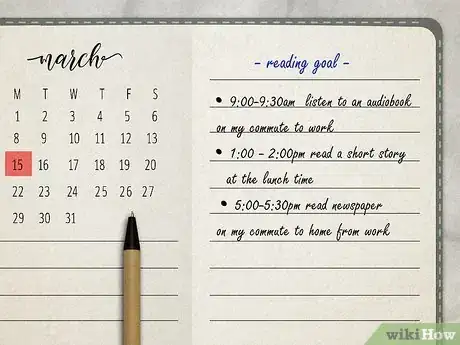 march
M T W T F S
1 2 3 4 5 6
8 9 10 11 12 13
15 16 17 18 19 20
22 23 24 25 26 27
29 30 31
- reading goal -
• 9:00-9:30am listen to an audiobook
on my commute to work
• 1:00 - 2:00pm read a short story
at the lunch time
• 5:00-5:30pm read newspaper
on my commute to home from work
wikiHow